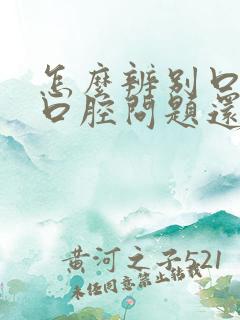 怎麼辨別口
口腔問題還
黃河之子521
未任同意禁止轉載